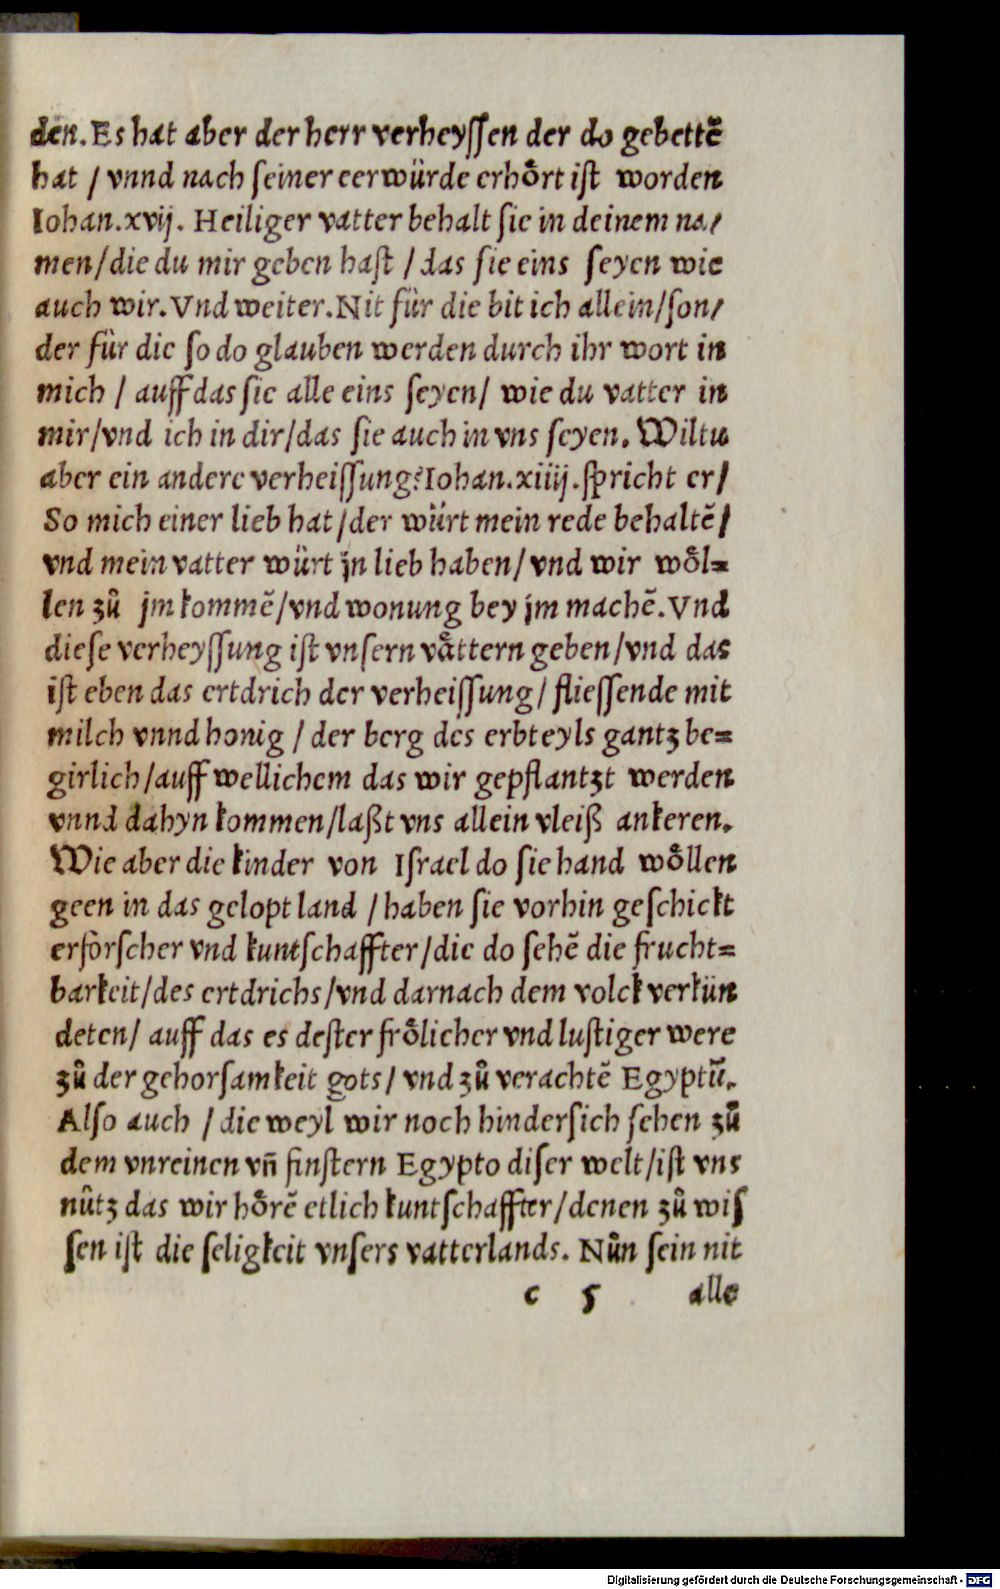 den. Es hat aber der herr verheyſſen der do gebettē
hat / vnnd nach ſeiner eerwürde erhoͤrt iſt worden
Iohan.xvij. Heiliger vatter behalt ſie in deinem na/
men/die du mir geben haſt / das ſie eins ſeyen wie
auch wir. Vnd weiter. Nit für die bit ich allein/ſon/
der für die ſo do glauben werden durch ihr wort in
mich / auff das ſie alle eins ſeyen/ wie du vatter in
mir/vnd ich in dir/das ſie auch in vns ſeyen. Wiltu
aber ein andere verheiſſung? Iohan.xiiij. ſpricht er/
So mich einer lieb hat/der würt mein rede behaltē/
vnd mein vatter würt jn lieb haben/vnd wir woͤl=
len zů jm kommē/vnd wonung bey jm machē. Vnd
dieſe verheyſſung iſt vnſern vaͤttern geben/vnd das
iſt eben das ertdrich der verheiſſung/ flieſſende mit
milch vnnd honig / der berg des erbteyls gantz be=
girlich/auff wellichem das wir gepflantzt werden
vnnd dahyn kommen/laßt vns allein vleiß ankeren.
Wie aber die kinder von Iſrael do ſie hand woͤllen
geen in das gelopt land / haben ſie vorhin geſchickt
erforſcher vnd kuntſchaffter/die do ſehē die frucht=
barkeit/des ertdrichs/vnd darnach dem volck verkün
deten/ auff das es deſter froͤlicher vnd luſtiger were
zů der gehorſamkeit gots/ vnd zů verachtē Egyptū.
Alſo auch / die weyl wir noch hinderſich ſehen zů
dem vnreinen vñ finſtern Egypto diſer welt/iſt vns
nütz das wir hoͤrē etlich kuntſchaffter/denen zů wiſ
ſen iſt die ſeligkeit vnſers vatterlands. Nůn ſein nit
c 5 alle
Digitalisierung gefördert durch die Deutsche Forschungsgemeinschaft - DFG